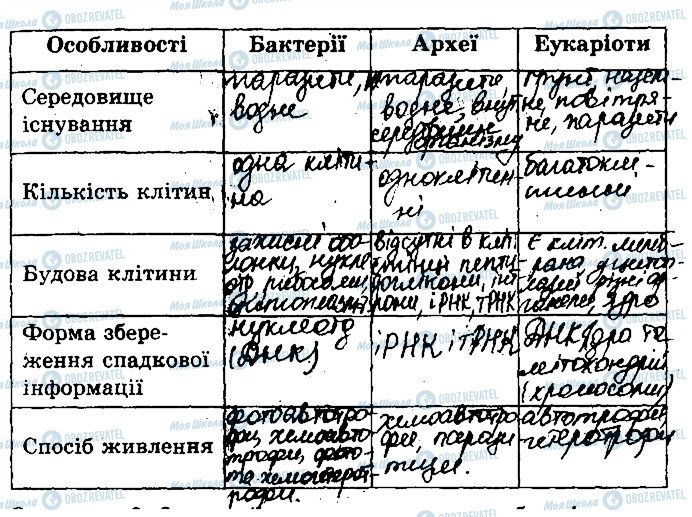 Особливості Бактерії Археї Еукаріоти
Середовище існування
паразити,
водне
паразити,
водне, внут.
середовище
організму
ґрунт, назем-
не, повітря-
не, паразити
Кількість клітин
одна кліти-
на
одноклітин-
ні
багатоклі-
тинні
Будова клітини
захисні обо-
лонки, нукле-
оїд, рибосоми,
цитоплазма
відсутній в клі-
тинній пепти-
доглікони, інт-
рони, іРНК, тРНК
Є кліт. мемб-
рана, цитоп-
лазма, різні ор-
ганели, ядро
Форма збере-
ження спадкової
інформації
нуклеоїд
(ДНК)
іРНК і тРНК
ДНК ядра та
мітохондрій
(хромосоми)
Спосіб живлення
фотоавтотро-
фи, хемоавто-
трофи, фото-
та хемогетерот-
рофи.
хемоавтотро-
фи, парази-
тичні.
автотрофи,
гетеротрофи
Моя Школа OBOZREVATEL